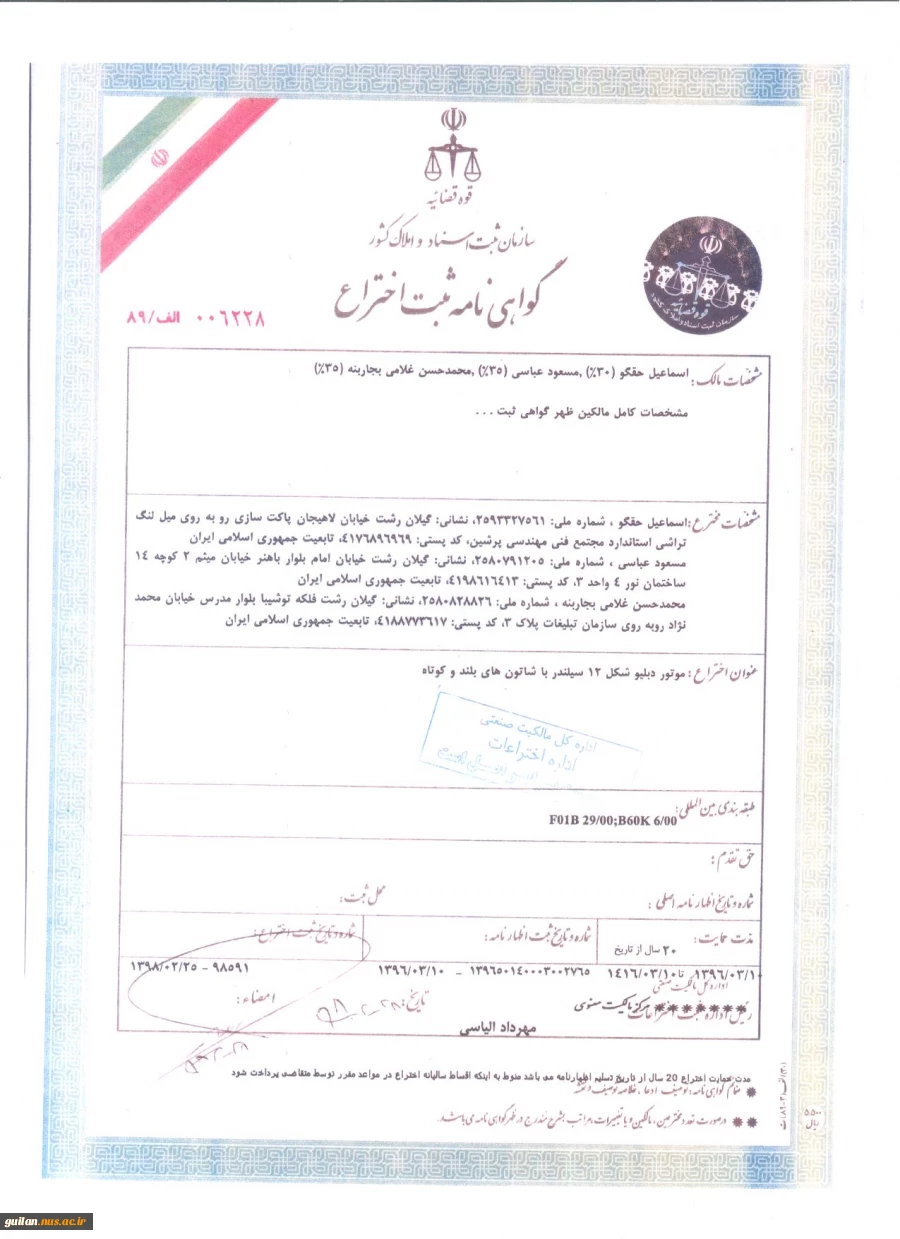 قوه قضائیه
سازمان ثبت اسناد و املاک کشور
گواهی نامه ثبت اختراع
۰۰۶۲۲۸ الف/۸۹
قوه قضائیه
سازمان ثبت اسناد و املاک کشور
مشخصات مالک: اسماعیل حقگو (۳۰٪) ,مسعود عباسی (۳۵٪) ,محمدحسن غلامی بجاربنه (۳۵٪)
مشخصات کامل مالکین ظهر گواهی ثبت . . .
مشخصات مخترع: اسماعیل حقگو ، شماره ملی: ۲۵۹۳۳۲۷۵۶۱، نشانی: گیلان رشت خیابان لاهیجان پاکت سازی رو به روی میل لنگ
تراشی استاندارد مجتمع فنی مهندسی پرشین، کد پستی: ۴۱۷۶۸۹۶۹۶۹، تابعیت جمهوری اسلامی ایران
مسعود عباسی ، شماره ملی: ۲۵۸۰۷۹۱۲۰۵، نشانی: گیلان رشت خیابان امام بلوار باهنر خیابان میثم ۲ کوچه ۱۴
ساختمان نور ۴ واحد ۳، کد پستی: ۴۱۹۸۶۱۶۴۱۳، تابعیت جمهوری اسلامی ایران
محمدحسن غلامی بجاربنه ، شماره ملی: ۲۵۸۰۸۲۸۸۲۶، نشانی: گیلان رشت فلکه توشیبا بلوار مدرس خیابان محمد
نژاد روبه روی سازمان تبلیغات پلاک ۳، کد پستی: ۴۱۸۸۷۷۳۶۱۷، تابعیت جمهوری اسلامی ایران
عنوان اختراع: موتور دبلیو شکل ۱۲ سیلندر با شاتون های بلند و کوتاه
اداره کل مالکیت صنعتی
اداره اختراعات
طبقه بندی بین المللی: F01B 29/00;B60K 6/00
حق تقدم:
شماره و تاریخ اظهارنامه اصلی: محل ثبت:
مدت حمایت: ۲۰ سال از تاریخ شماره و تاریخ ثبت اظهارنامه: شماره و تاریخ ثبت اختراع:
۱۳۹۶/۰۳/۱۰ تا ۱۴۱۶/۰۳/۱۰ ۱۳۹۶۵۰۱۴۰۰۰۳۰۰۲۷۶۵ - ۱۳۹۶/۰۳/۱۰ ۹۸۵۹۱ - ۱۳۹۸/۰۲/۲۵
اداره کل مالکیت صنعتی
رئیس اداره ثبت اختراعات مرکز مالکیت معنوی تاریخ: امضاء:
مهرداد الیاسی
مدت حمایت اختراع 20 سال از تاریخ تسلیم اظهارنامه می باشد منوط به اینکه اقساط سالیانه اختراع در مواعد مقرر توسط متقاضی پرداخت شود
ضمائم گواهی نامه: توصیف، ادعا، خلاصه توصیف و نقشه
درصورت تعدد مخترعین، مالکین و یا تغییرات، مراتب بشرح مندرج در ظهر گواهی نامه می باشد.
۵۵۰۰ ریال
guilan.nus.ac.ir